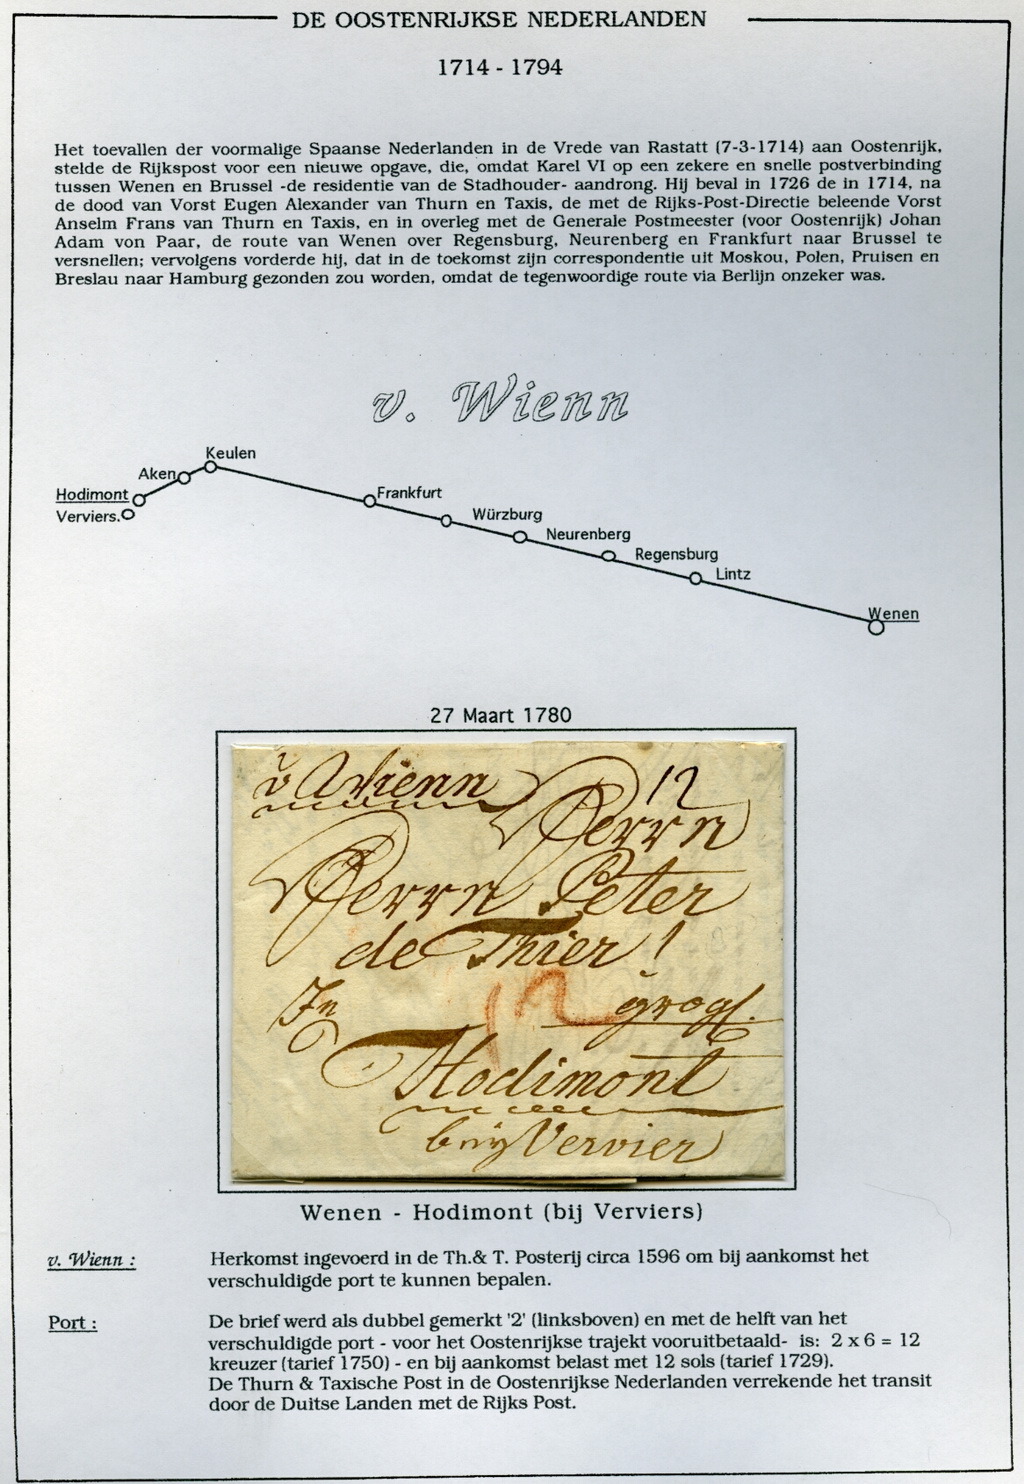 DE OOSTENRIJKSE NEDERLANDEN
1714 - 1794
Het toevallen der voormalige Spaanse Nederlanden in de Vrede van Rastatt (7-3-1714) aan Oostenrijk,
stelde de Rijkspost voor een nieuwe opgave, die, omdat Karel VI op een zekere en snelle postverbinding
tussen Wenen en Brussel -de residentie van de Stadhouder- aandrong. Hij beval in 1726 de in 1714, na
de dood van Vorst Eugen Alexander van Thurn en Taxis, de met de Rijks-Post-Directie beleende Vorst
Anselm Frans van Thurn en Taxis, en in overleg met de Generale Postmeester (voor Oostenrijk) Johan
Adam von Paar, de route van Wenen over Regensburg, Neurenberg en Frankfurt naar Brussel te
versnellen; vervolgens vorderde hij, dat in de toekomst zijn correspondentie uit Moskou, Polen, Pruisen en
Breslau naar Hamburg gezonden zou worden, omdat de tegenwoordige route via Berlijn onzeker was.
v. Wienn
Keulen
Aken
Hodimont
Verviers.
Frankfurt
Würzburg
Neurenberg
Regensburg
Lintz
Wenen
27 Maart 1780
v Wienn 12
Herrn
Herrn Peter
de Thier !
In 12
Hodimont
beÿ Vervier
Wenen - Hodimont (bij Verviers)
v. Wienn : Herkomst ingevoerd in de Th.& T. Posterij circa 1596 om bij aankomst het
verschuldigde port te kunnen bepalen.
Port : De brief werd als dubbel gemerkt '2' (linksboven) en met de helft van het
verschuldigde port - voor het Oostenrijkse trajekt vooruitbetaald- is: 2 x 6 = 12
kreuzer (tarief 1750) - en bij aankomst belast met 12 sols (tarief 1729).
De Thurn & Taxische Post in de Oostenrijkse Nederlanden verrekende het transit
door de Duitse Landen met de Rijks Post.